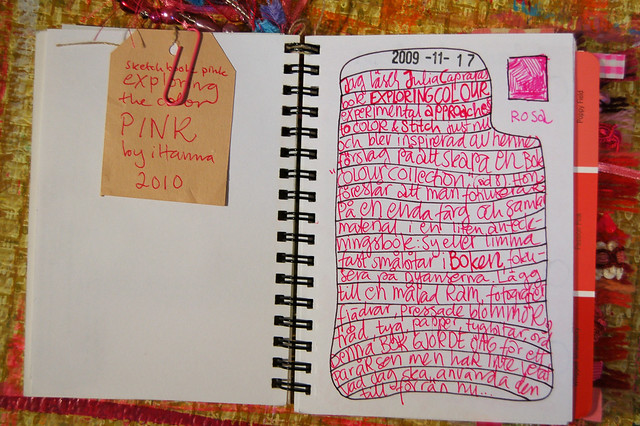 sketchbook pink
exploring
the color
PINK
by iHanna
2010
2009 -11- 17
ROSa
Jag läser Julia Capraras
bok EXPLORING COLOUR
experimental approaches
to COLOR & Stitch just nu
och blev inspirerad av hennes
förslag på att skapa en Bok
"colour collection". Hon
föreslår att man fokuserar
på en enda färg och samlar
material i en liten anteck-
ningsbok: sy eller limma
fast smålotar i Boken, foku-
sera på nyanserna. Lägg
till en målad Ram, fotografier
fjädrar, pressade blommor,
tråd, tyg, papper, tyglotar, ord
denna BOK GJORDE JAG för ett
par år sen men har inte vetat
vad jag ska använda den
till förrän nu...